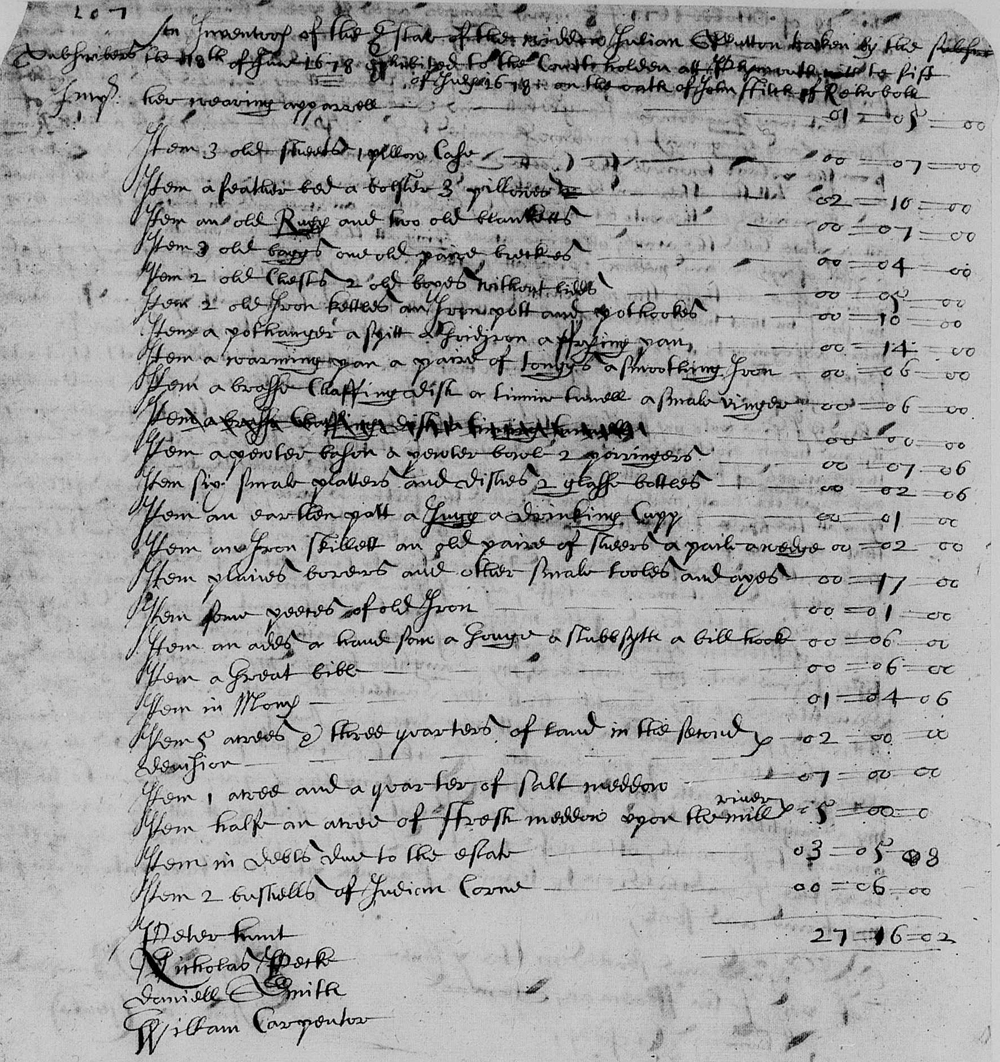 207
An Inventory of the Estate of the widdow Julian Sutton taken by the
Subscribers the 18th of June 1678 exhibited to the Court holden att Plymouth to fift
of July 1678 on the oath of John ffitch of Rehoboth
Impr. her wearing apparrell 01=05=00
Item 3 old sheets 1 pillow Case 00=07=00
Item a feather bed a bolster 3 pillowes 02=10=00
Item an old Rugg and two old blanketts 00=07=00
Item 3 old baggs one old paire breches 00=04=00
Item 2 old Chests 2 old boxes without lidds 00=05=00
Item 2 old Iron kettles an Iron pott and pothookes 00=10=00
Item a pothanger a spitt a Gridiron a ffrying pan 00=14=00
Item a warming pan a paire of tonggs a smoothing Iron 00=06=00
Item a brasse Chaffing dish a tinnin tunell a smale 00=06=00
Item a brasse Chaffing dish a 00=00=00
Item a pewter bason a pewter bowl 2 porringers 00=07=06
Item six smale platters and dishes 2 glasse bottles 00=02=06
Item an earthen pott a Jugg a drinking Cupp 00=01=00
Item an Iron skillett an old paire of sheers a paile a wedge 00=02=00
Item plaines borers and other smale tooles and axes 00=17=00
Item some peeces of old Iron 00=01=00
Item an adds a hand saw a a stubb sythe a bill hook 00=06=00
Item a Great bible 00=06=00
Item in Mony 01=04=06
Item 5 acrees & three quarters of land in the second 02=00=00
devision
Item 1 acree and a quarter of salt meddow 07=00=00
river
Item halfe an acree of ffresh meddow upon the mill 5=00=0
Item in debts due to the estate 03=05=08
Item 2 bushells of Indian Corne 00=06=00
27=16=02
Peter hunt
Nicholas Pecke
Daniell Smith
William Carpenter